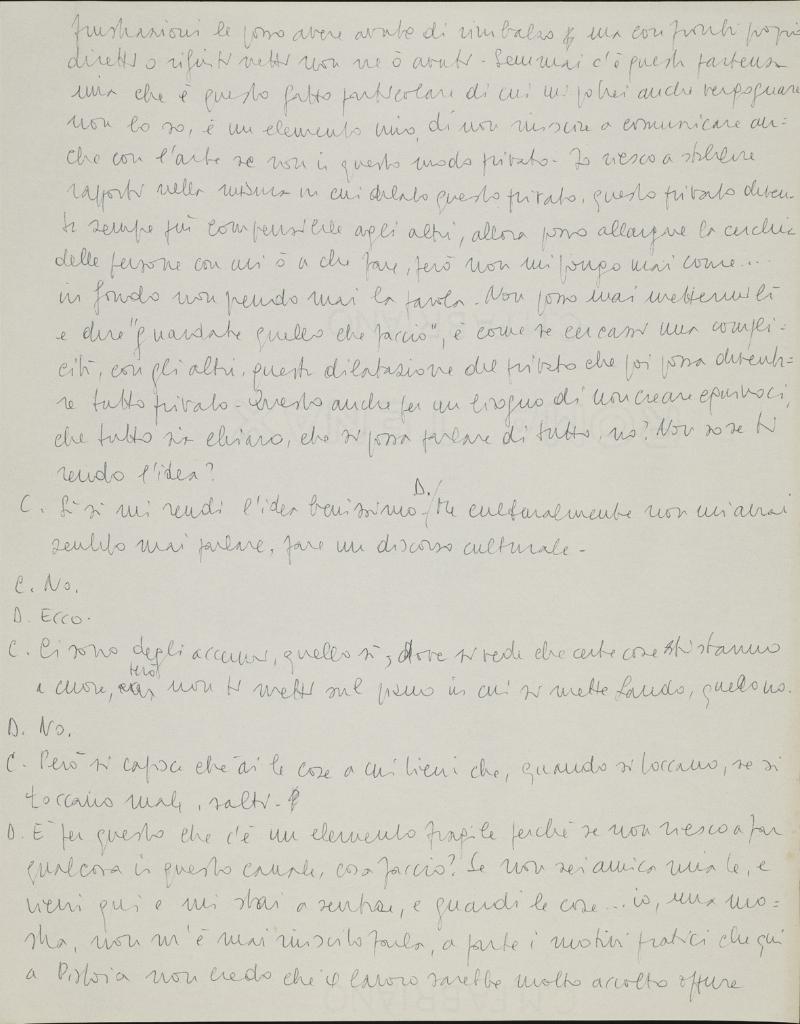 frustrazioni le posso avere avute di rimbalzo ma confronti proprio
diretti o rifiuti netti non ne ò avuti - Semmai c'è questa partenza
mia che è questo fatto particolare di cui mi potrei anche vergognare
non lo so, è un elemento mio, di non riuscire a comunicare an=
che con l'arte se non in questo modo privato - Io riesco a stabilire
rapporti nella misura in cui dilato questo privato, questo privato diven-
ta sempre più comprensibile agli altri, allora posso allargare la cerchia
delle persone con cui ò a che fare, però non mi pongo mai come...
in fondo non prendo mai la parola. Non posso mai mettermi lì
e dire "guardate quello che faccio", è come se cercassi una compli-
cità, con gli altri, questa dilatazione del privato che poi possa diventa-
re tutto privato - Questo anche per un bisogno di non creare equivoci,
che tutto sia chiaro, che si possa parlare di tutto, no? Non so se ti
rendo l'idea?
C. Sì sì mi rendi l'idea benissimo - D. / Ma culturalmente non mi avrai
sentito mai parlare, fare un discorso culturale -
C. No.
D. Ecco.
C. Ci sono degli accenni, quello sì, dove si vede che certe cose ti stanno
a cuore, però non ti metti sul piano in cui si mette Lando, quello no.
D. No.
C. Però si capisce che ài le cose a cui tieni che, quando si toccano, se si
toccano male, salti -
D. È per questo che c'è un elemento fragile perché se non riesco a far
qualcosa in questo canale, cosa faccio? Se non sei amica mia te, e
vieni qui e mi stai a sentire, e guardi le cose... io, una mo=
stra, non m'è mai riuscito farla, a parte i motivi pratici che qui
a Pistoia non credo che il lavoro sarebbe molto accolto oppure